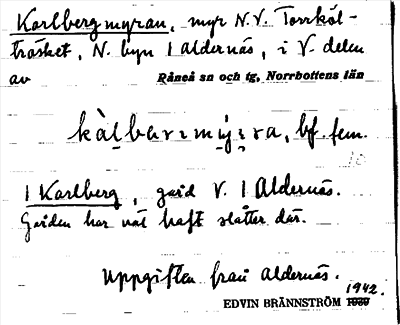 Karlbergmyran, myr N.V. Torrkål-
träsket, N. byn 1 Aldernäs, i V. delen
av Råneå sn och tg, Norrbottens län
bf. fem.
1 Karlberg, gård V. 1 Aldernäs.
Gården har nåt haft slåtter där.
Uppgiften från Aldernäs.
1942.
EDVIN BRÄNNSTRÖM 1939